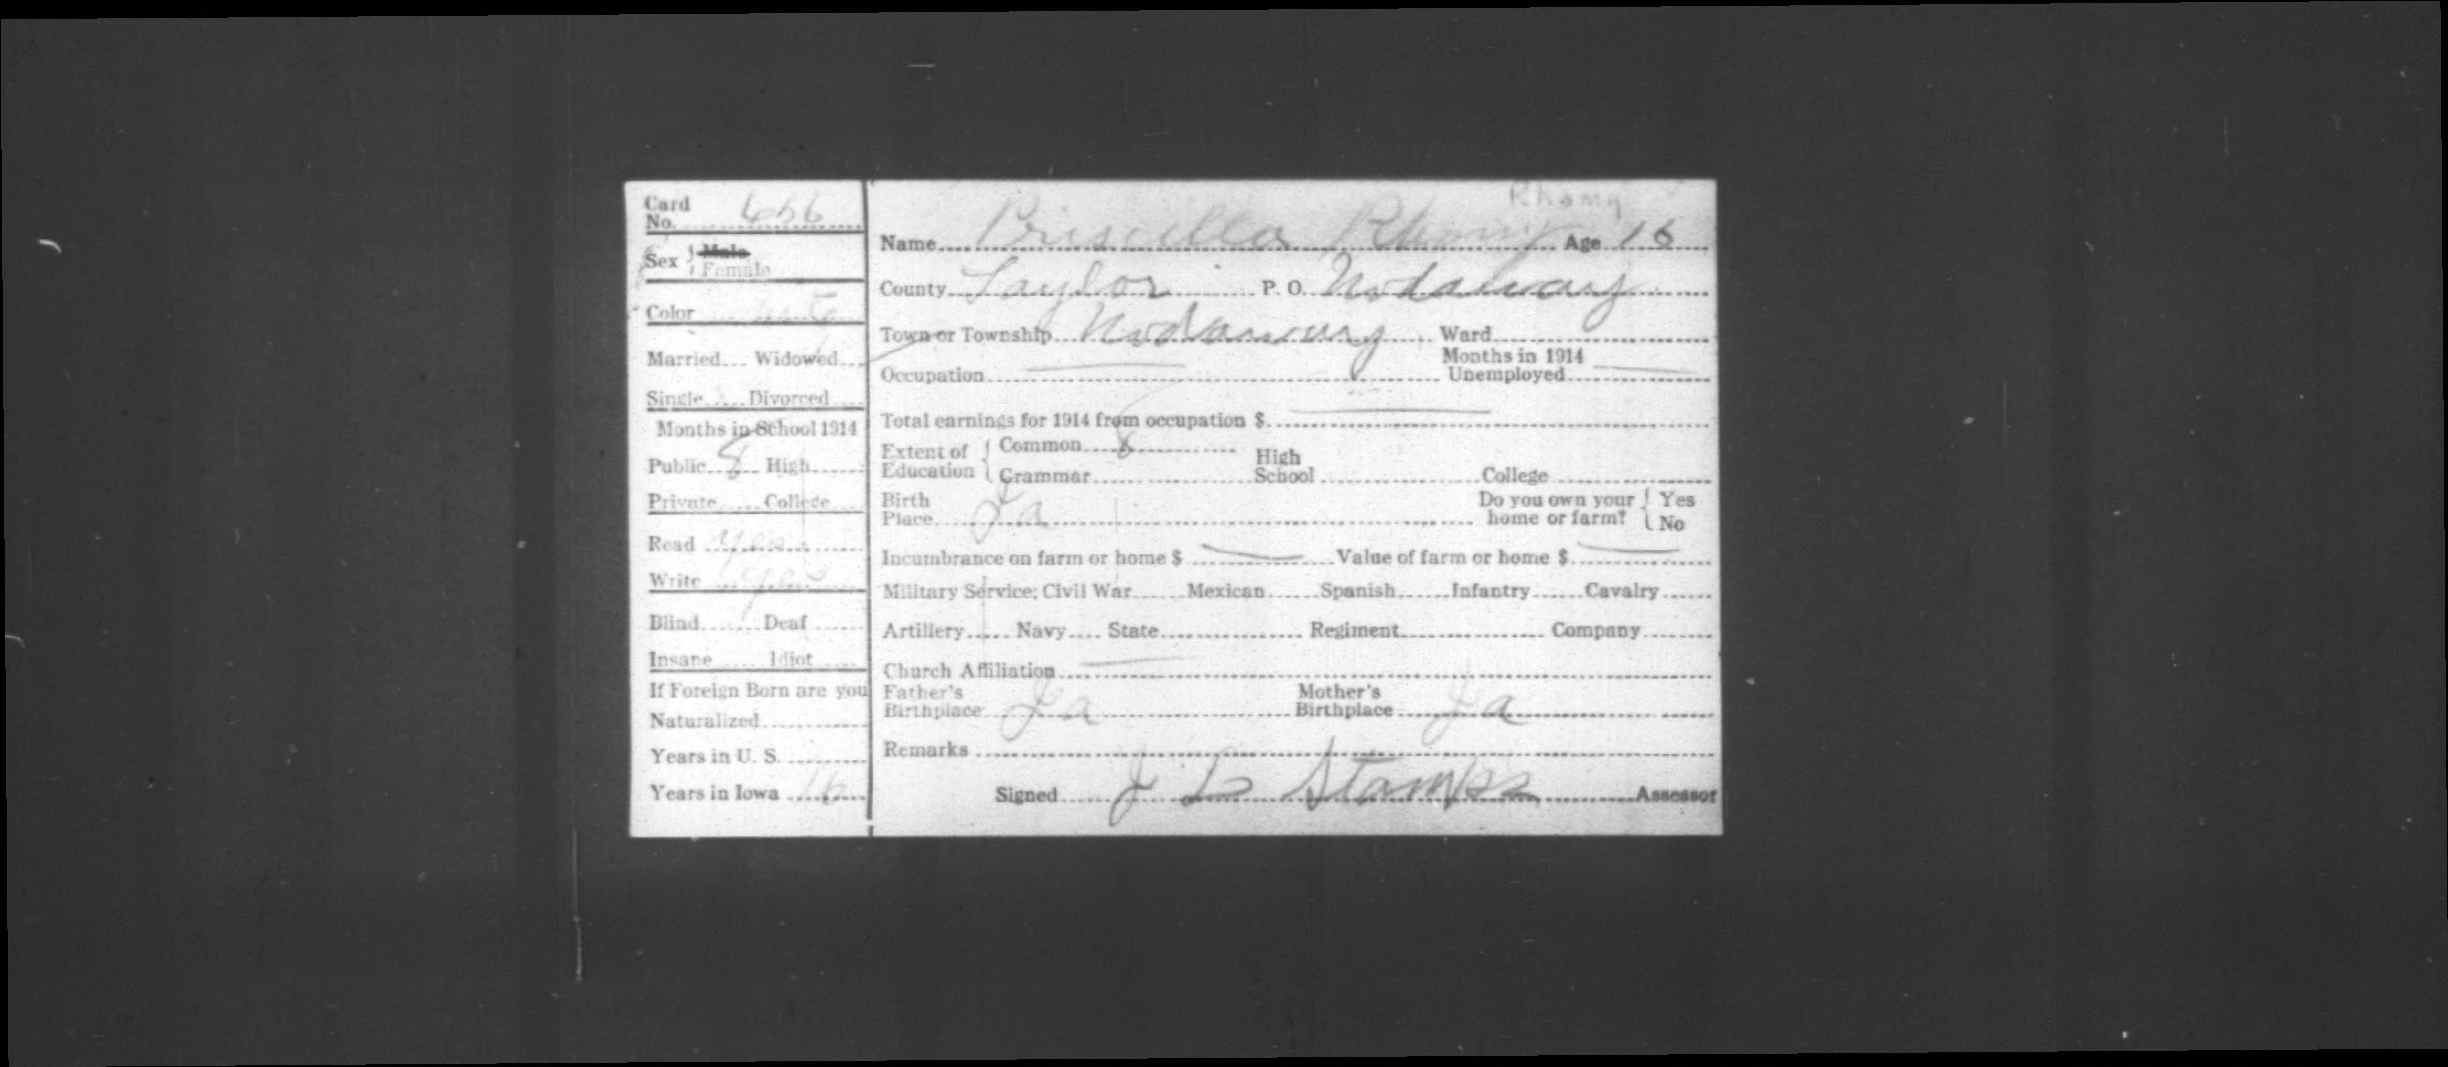 Card No. 656
Sex Male Female
Color White
Married Widowed
Single Divorced
Months in School 1914
Public 8 High
Private College
Read yes
Write yes
Blind Deaf
Insane Idiot
If Foreign Born are you
Naturalized
Years in U. S.
Years in Iowa 16
Rhamy
Name Priscilla Rhamy Age 16
County Taylor P. O. Nodaway
Town or Township Nodaway Ward
Occupation Months in 1914 Unemployed
Total earnings for 1914 from occupation $
Extent of Education Common 8 Grammar High School College
Birth Place Ia Do you own your home or farm? Yes No
Incumbrance on farm or home $ Value of farm or home $
Military Service; Civil War Mexican Spanish Infantry Cavalry
Artillery Navy State Regiment Company
Church Affiliation
Father's Birthplace Ia Mother's Birthplace Ia
Remarks
Signed J L Stamps Assessor